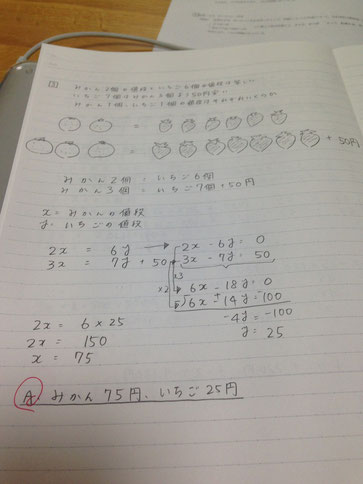 みかん2個の値段といちご6個の値段は等しい
いちご7個はみかん3個より50円安い
みかん1個、いちご1個の値段はそれぞれいくらか
=
= + 50円
みかん2個 = いちご6個
みかん3個 = いちご7個 + 50円
x = みかんの値段
y = いちごの値段
2x = 6y → 2x - 6y = 0
3x = 7y + 50 3x - 7y = 50
×3
×2 6x - 18y = 0
6x - 14y = 100
-4y = -100
y = 25
2x = 6 × 25
2x = 150
x = 75
A みかん 75円、いちご 25円